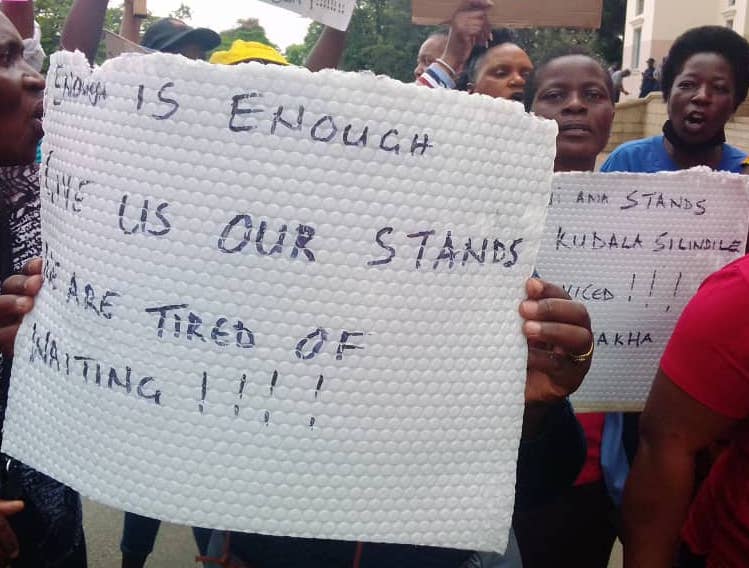 ENOUGH IS ENOUGH
GIVE US OUR STANDS
WE ARE TIRED OF
WAITING !!!!
AMA STANDS
KUDALA SILINDILE
VICED !!!
AKHA